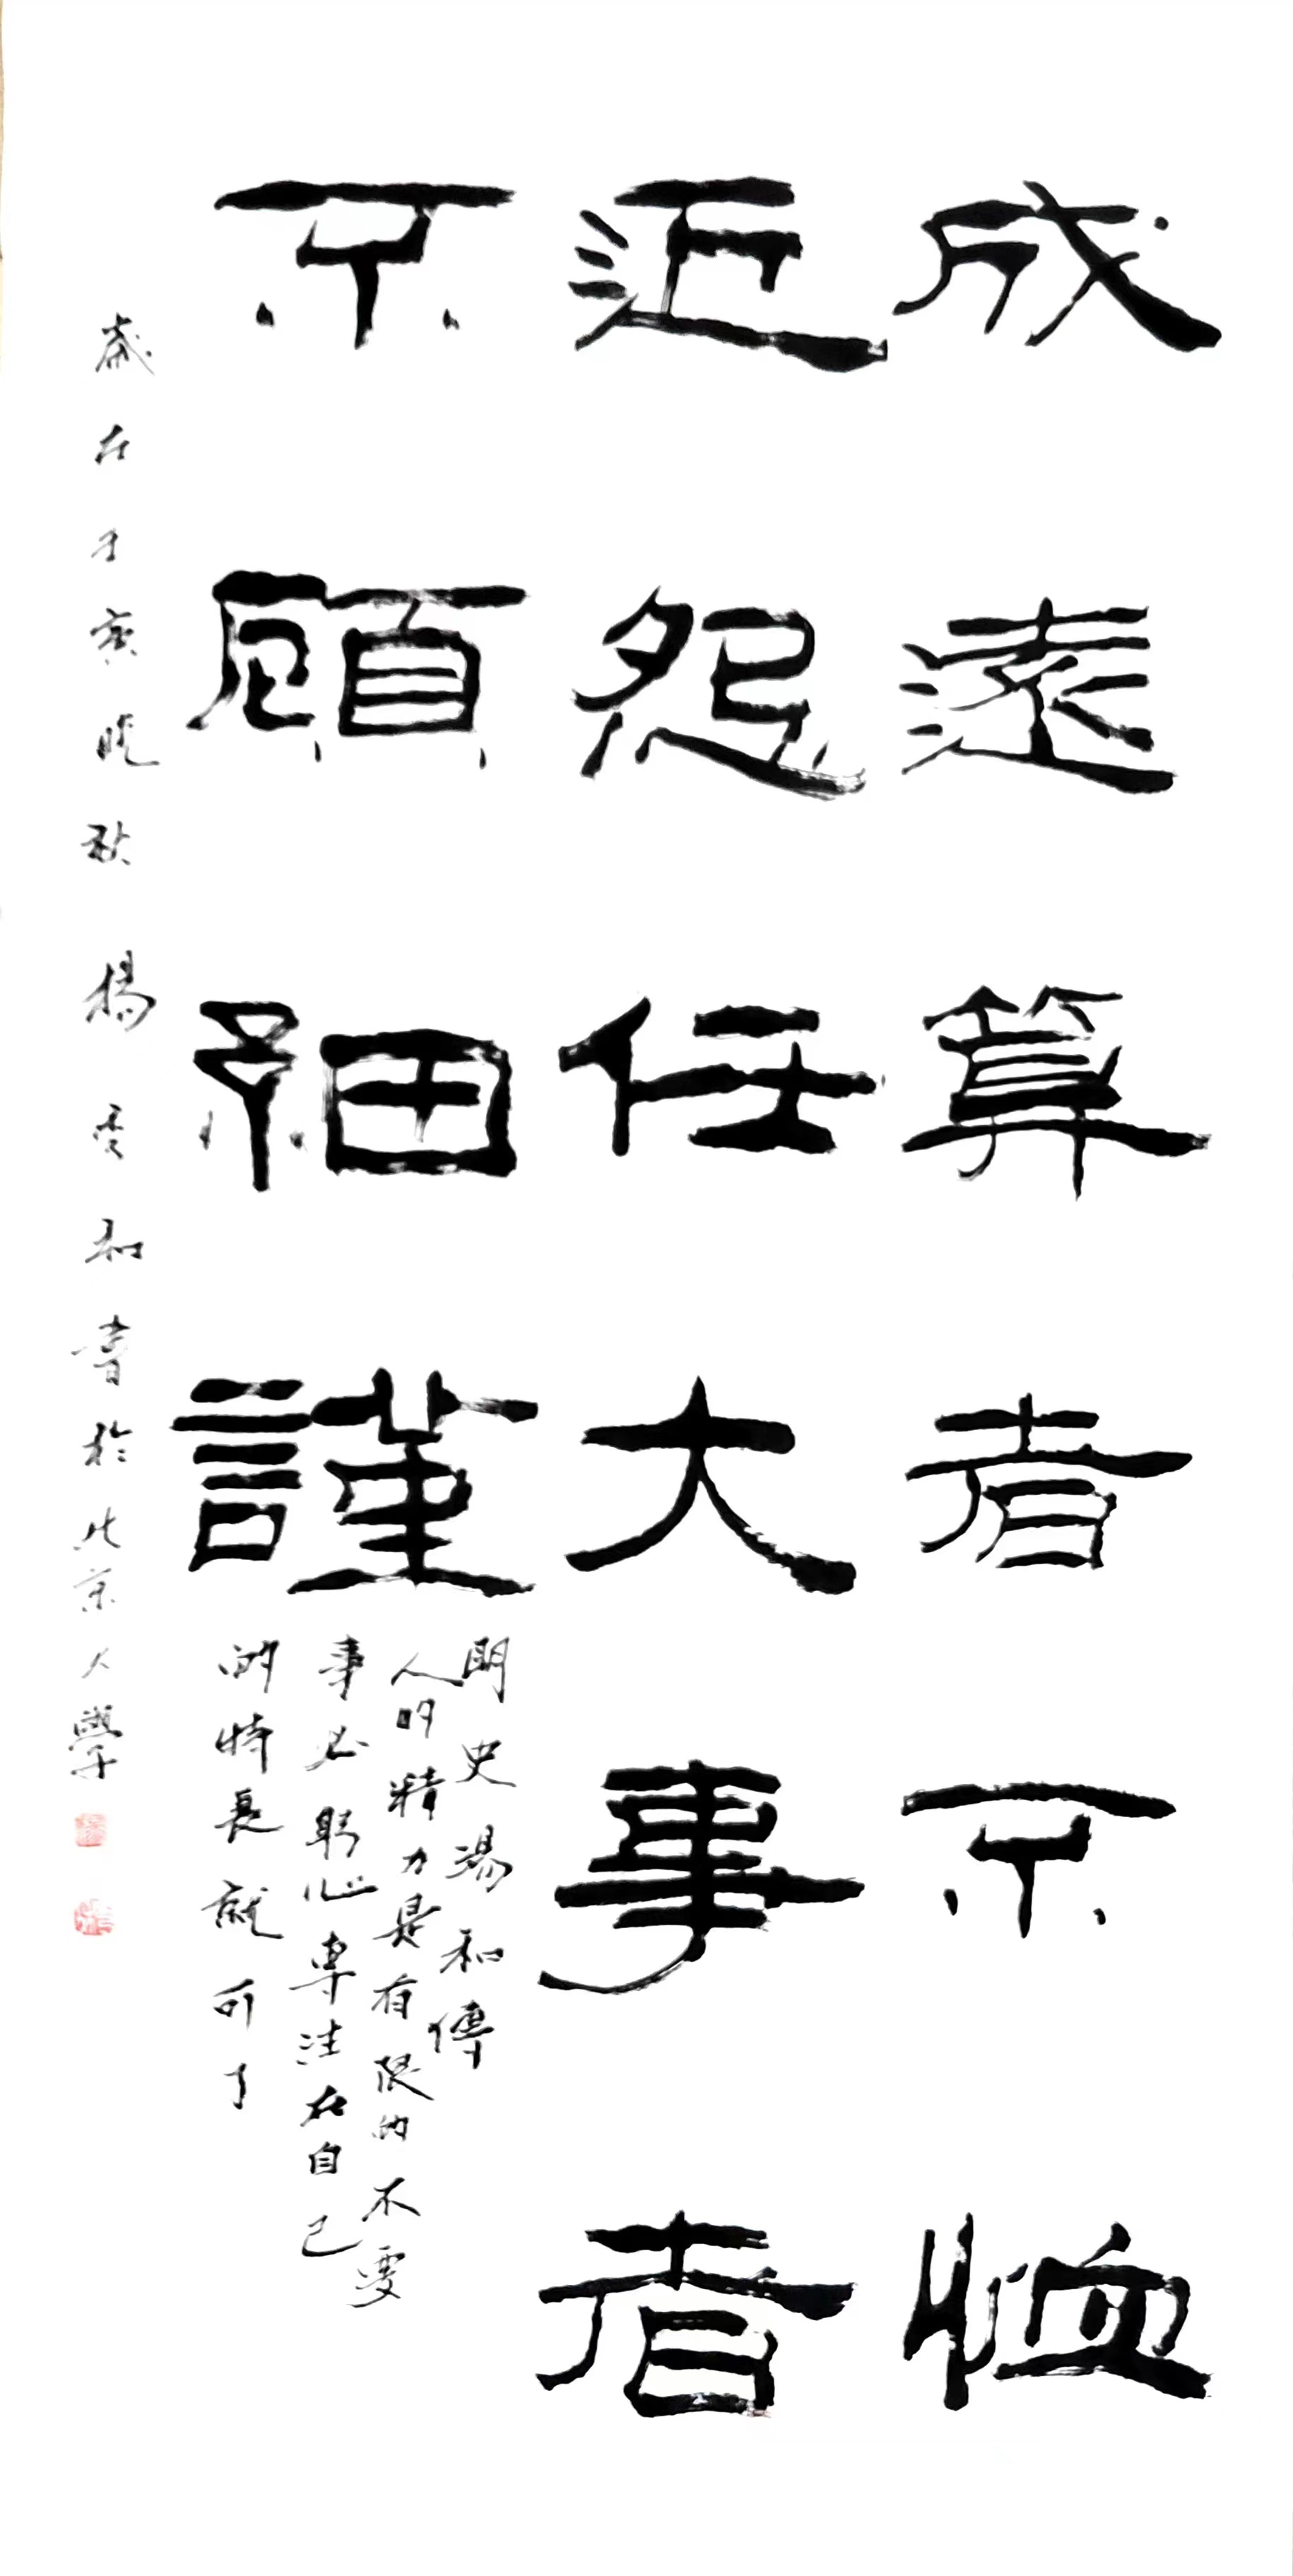 成遠算者不恤
近怨任大事者
不顧細謹
明史湯和傳
人的精力是有限的不要
事必躬心專注在自己
的特長就可了
歲在壬寅晚秋楊雲和書於北京大學